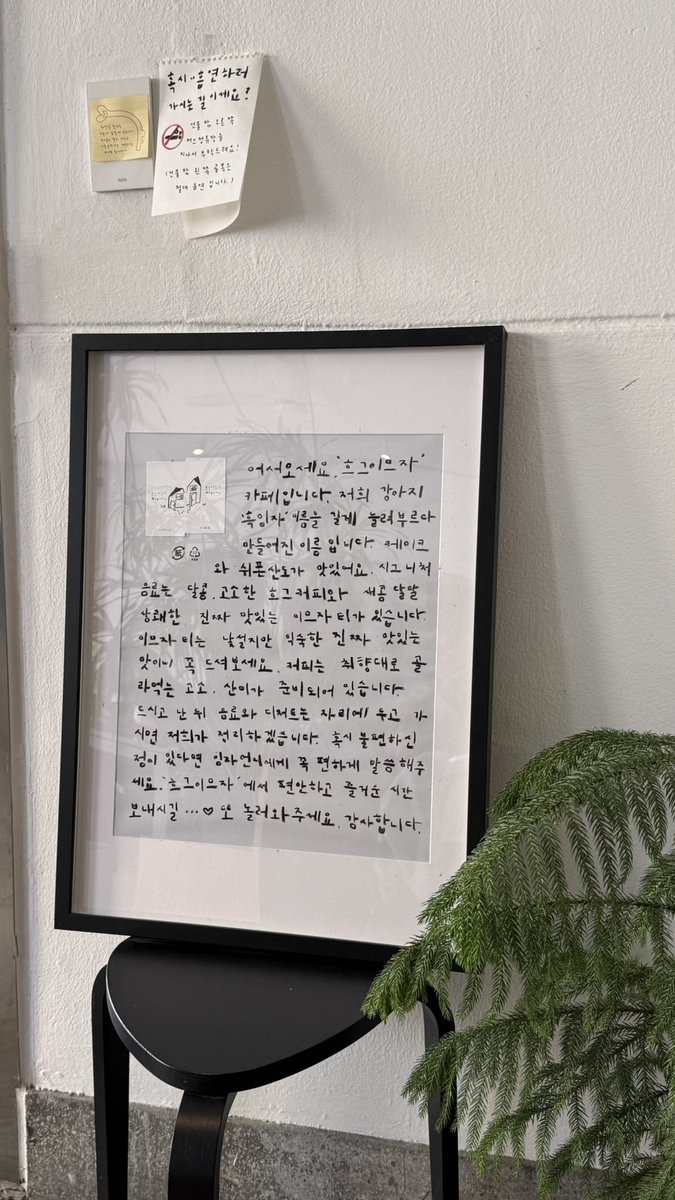 혹시.. 흡연하러
가시는 길이세요?
건물 밖 오른쪽
버스정류장을
지나서 부탁드려요!
(건물 밖 왼쪽 골목은
절대 금연입니다.)
어서오세요. '흐그이므자'
카페입니다. 저희 강아지
'흑임자' 이름을 길게 늘려부르다
만들어진 이름입니다. 케이크
와 쉬폰산도가 맛있어요. 시그니처
음료는 달콤, 고소한 흐그커피와 새콤달달
상쾌한 진짜 맛있는 이므자 티가 있습니다.
이므자 티는 낯설지만 익숙한 진짜 맛있는
맛이니 꼭 드셔보세요. 커피는 취향대로 골
라먹는 고소, 산미가 준비되어 있습니다.
드시고 난 뒤 음료와 디저트는 자리에 두고 가
시면 저희가 정리하겠습니다. 혹시 불편하신
점이 있다면 임자언니에게 꼭 편하게 말씀해주
세요. '흐그이므자'에서 편안하고 즐거운 시간
보내시길...♡ 또 놀러와주세요. 감사합니다.